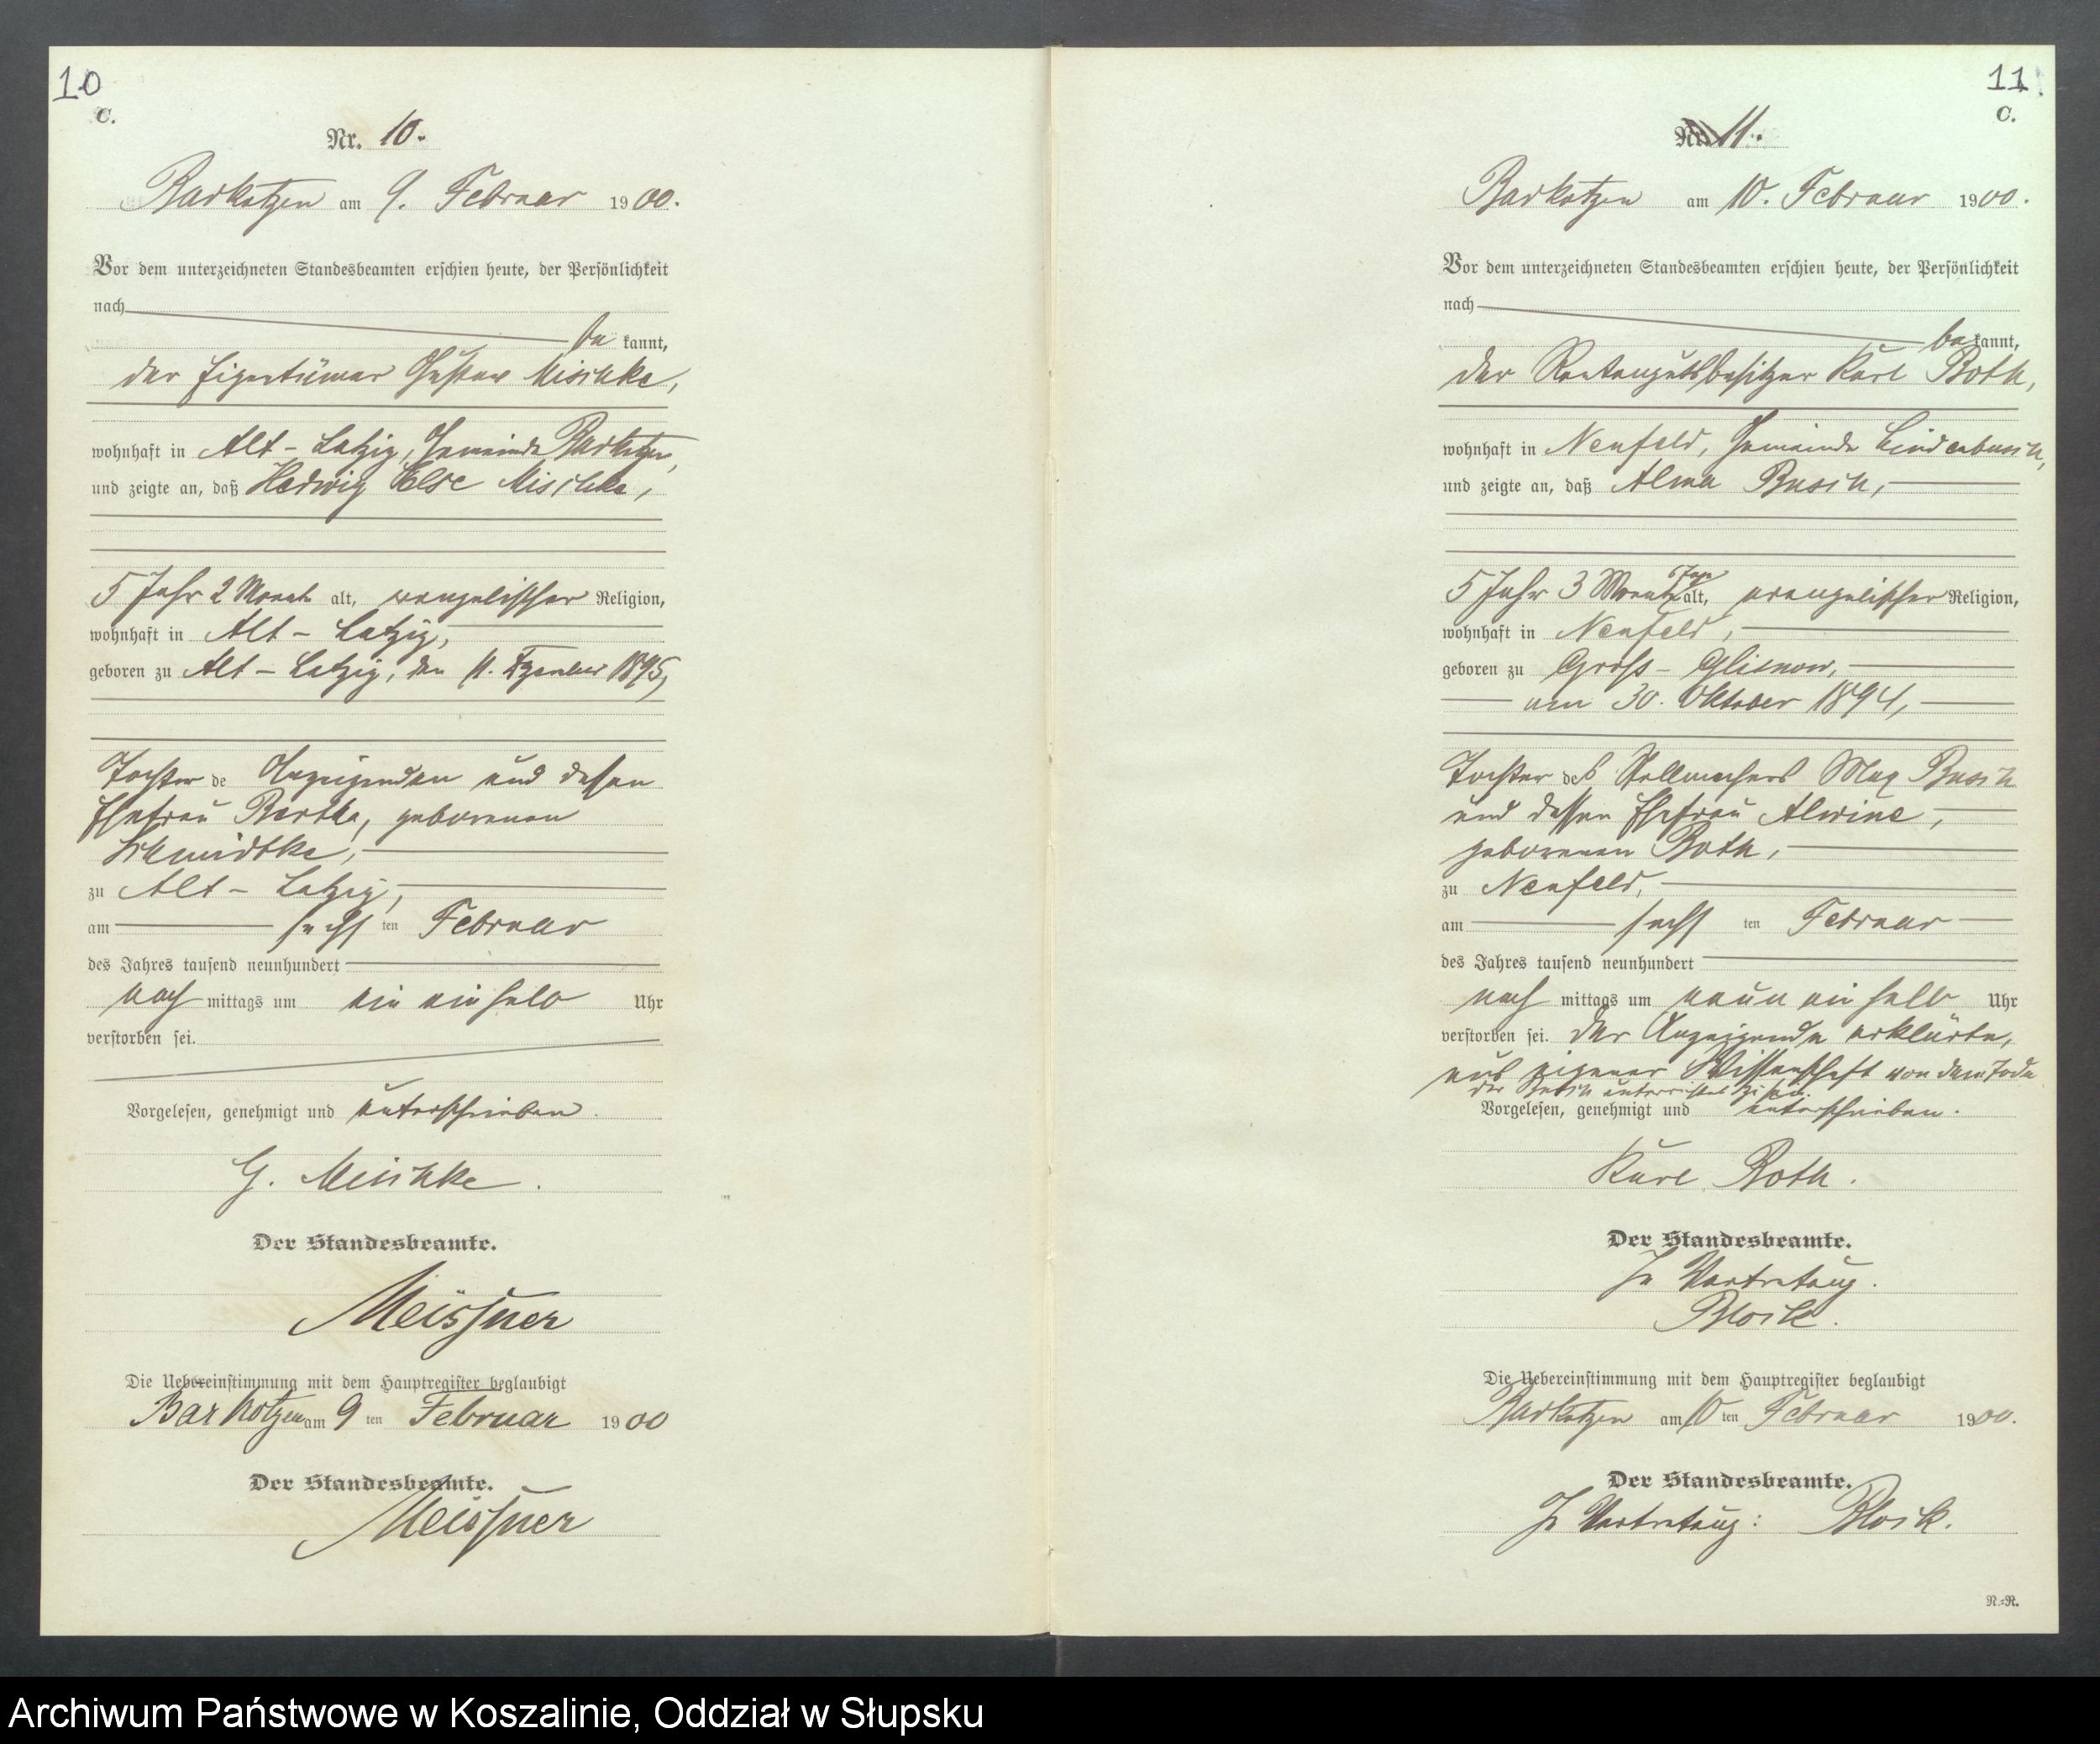 10
C.
Nr. 10.
Barkotzen am 9. Februar 1900.
Vor dem unterzeichneten Standesbeamten erschien heute, der Persönlichkeit
nach
be kannt,
der Eigentümer Gustav Mischke,
wohnhaft in Alt-Latzig, Gemeinde Barkotzen,
und zeigte an, daß Hedwig Else Mischke,
5 Jahr 2 Monat alt, evangelischer Religion,
wohnhaft in Alt-Latzig,
geboren zu Alt-Latzig, den 11. Dezember 1895,
Tochter de Anzeigenden und dessen
Ehefrau Bertha, geborenen
Schmidtke,
zu Alt-Latzig,
am sechs ten Februar
des Jahres tausend neunhundert
nach mittags um ein ein halb Uhr
verstorben sei.
Vorgelesen, genehmigt und unterschrieben.
G. Mischke.
Der Standesbeamte.
Meissner
Die Uebereinstimmung mit dem Hauptregister beglaubigt
Barkotzen am 9 ten Februar 1900
Der Standesbeamte.
Meissner
11
C.
Nr. 11.
Barkotzen am 10. Februar 1900.
Vor dem unterzeichneten Standesbeamten erschien heute, der Persönlichkeit
nach
be kannt,
der Rentengutsbesitzer Karl Roth,
wohnhaft in Neufeld, Gemeinde Lindenbusch,
und zeigte an, daß Alma Busch,
5 Jahr 3 Monat 6 Tage alt, evangelischer Religion,
wohnhaft in Neufeld,
geboren zu Gross-Glisnow,
am 30. Oktober 1894,
Tochter des Stellmachers Max Busch
und dessen Ehefrau Alwine,
geborenen Roth,
zu Neufeld,
am sechs ten Februar
des Jahres tausend neunhundert
nach mittags um neun ein halb Uhr
verstorben sei. Der Anzeigende erklärte,
aus eigener Wissenschaft von dem Tode
der Busch unterrichtet zu sein.
Vorgelesen, genehmigt und unterschrieben.
Karl Roth.
Der Standesbeamte.
In Vertretung.
Die Uebereinstimmung mit dem Hauptregister beglaubigt
Barkotzen am 10 ten Februar 1900.
Der Standesbeamte.
In Vertretung:
N.-R.
Archiwum Państwowe w Koszalinie, Oddział w Słupsku